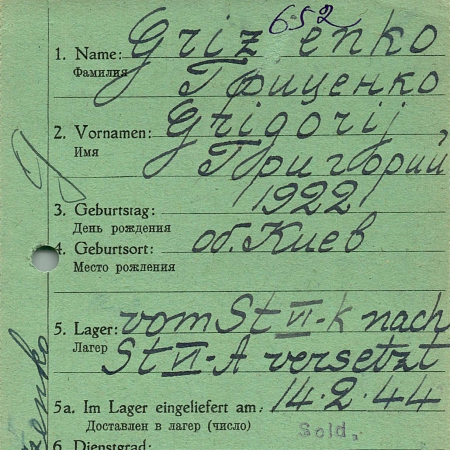 6·52
1. Name: Grizenko
Фамилия Гриценко
2. Vornamen: Grigorij,
Имя Григорий
3. Geburtstag: 1922
День рождения
4. Geburtsort: об. Киев
Место рождения
5. Lager: vom St VI-K nach
Лагер St VI-A versetzt
5a. Im Lager eingeliefert am: 14.2.44
Доставлен в лагер (число)
6. Dienstgrad: Sold.
zenko